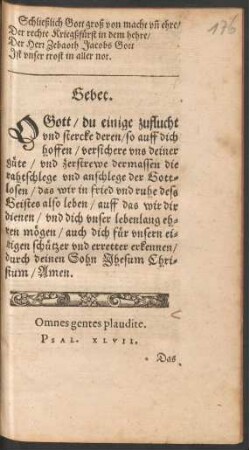 176
Schließlich Gott groß von macht vñ ehre/
Der rechte Kriegsfürst in dem hehre/
Der Herr Zebaoth Jacobs Gott
Ist vnser trost in aller not.
Gebet.
O Gott/ du einige zuflucht
vnd stercke deren/ so auff dich
hoffen/ versichere vns deiner
güte/ vnd zerstrewe dermassen die
rahtschlege vnd anschlege der Gott-
losen/ das wir in fried vnd ruhe deß
Geistes also leben/ auff das wir dir
dienen/ vnd dich vnser lebenlang eh-
ren mögen/ auch dich für vnsern ei-
nigen schützer vnd erretter erkennen/
durch deinen Sohn Jhesum Chri-
stum/ Amen.
Omnes gentes plaudite.
PSAL. XLVII.
* Das